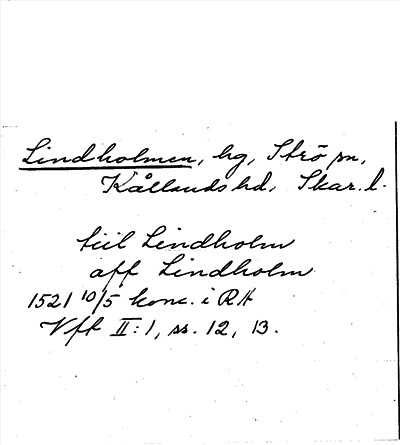 Lindholmen, hg, Strö sn,
Kållands hd, Skar. l.
tiil Lindholm
aff Lindholm
1521 10/5 konc. i RA
Vft II:1, ss. 12, 13.